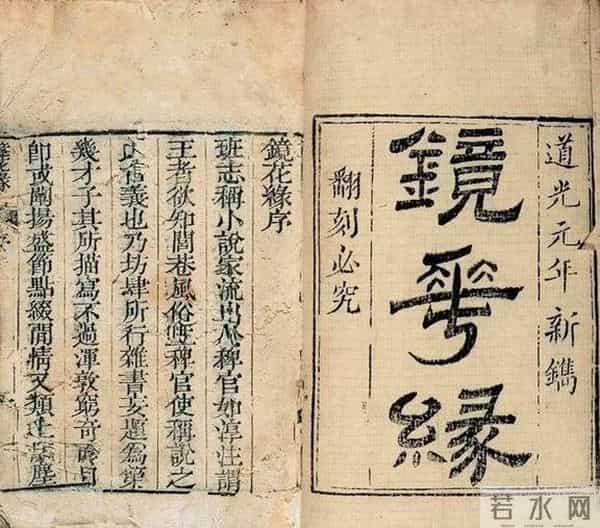 道光元年新鐫
鏡華緣
翻刻必究
鏡花緣序
班志稱小說家流出於稗官如淳注謂
王者欲知閭巷風俗立稗官使稱說之
舊義也乃坊肆所行雜書妄題為第
幾才子其所描寫不過渾敦窮奇面目
即或闡揚盛節點綴閒情又類土塵
若水网